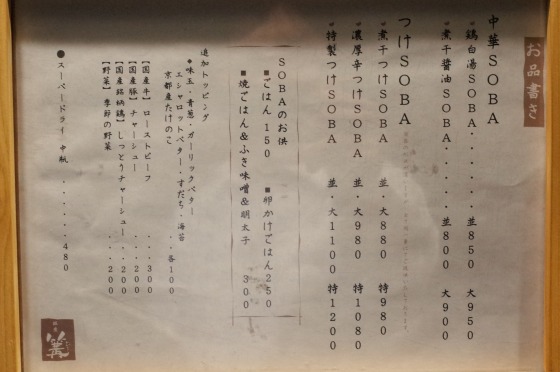 お品書き
中華SOBA
鶏白湯SOBA・・・・・・・並850 大950
煮干醤油SOBA・・・・・・並800 大900
つけSOBA
煮干つけSOBA 並・大880 特980
濃厚辛つけSOBA 並・大980 特1080
特製つけSOBA 並・大1100 特1200
SOBAのお供
■ごはん 150 ■卵かけごはん250
■焼ごはん&ふき味噌&明太子 300
追加トッピング
◆味玉・青葱・ガーリックバター
エシャロットバター・すだち・海苔
京都産たけのこ ・・各100
【国産牛】ローストビーフ ・・・300
【国産豚】チャーシュー ・・・200
【国産銘柄鶏】しっとりチャーシュー ・・200
【野菜】季節の野菜 ・・・200
●スーパードライ 中瓶 ・・・・・・・480